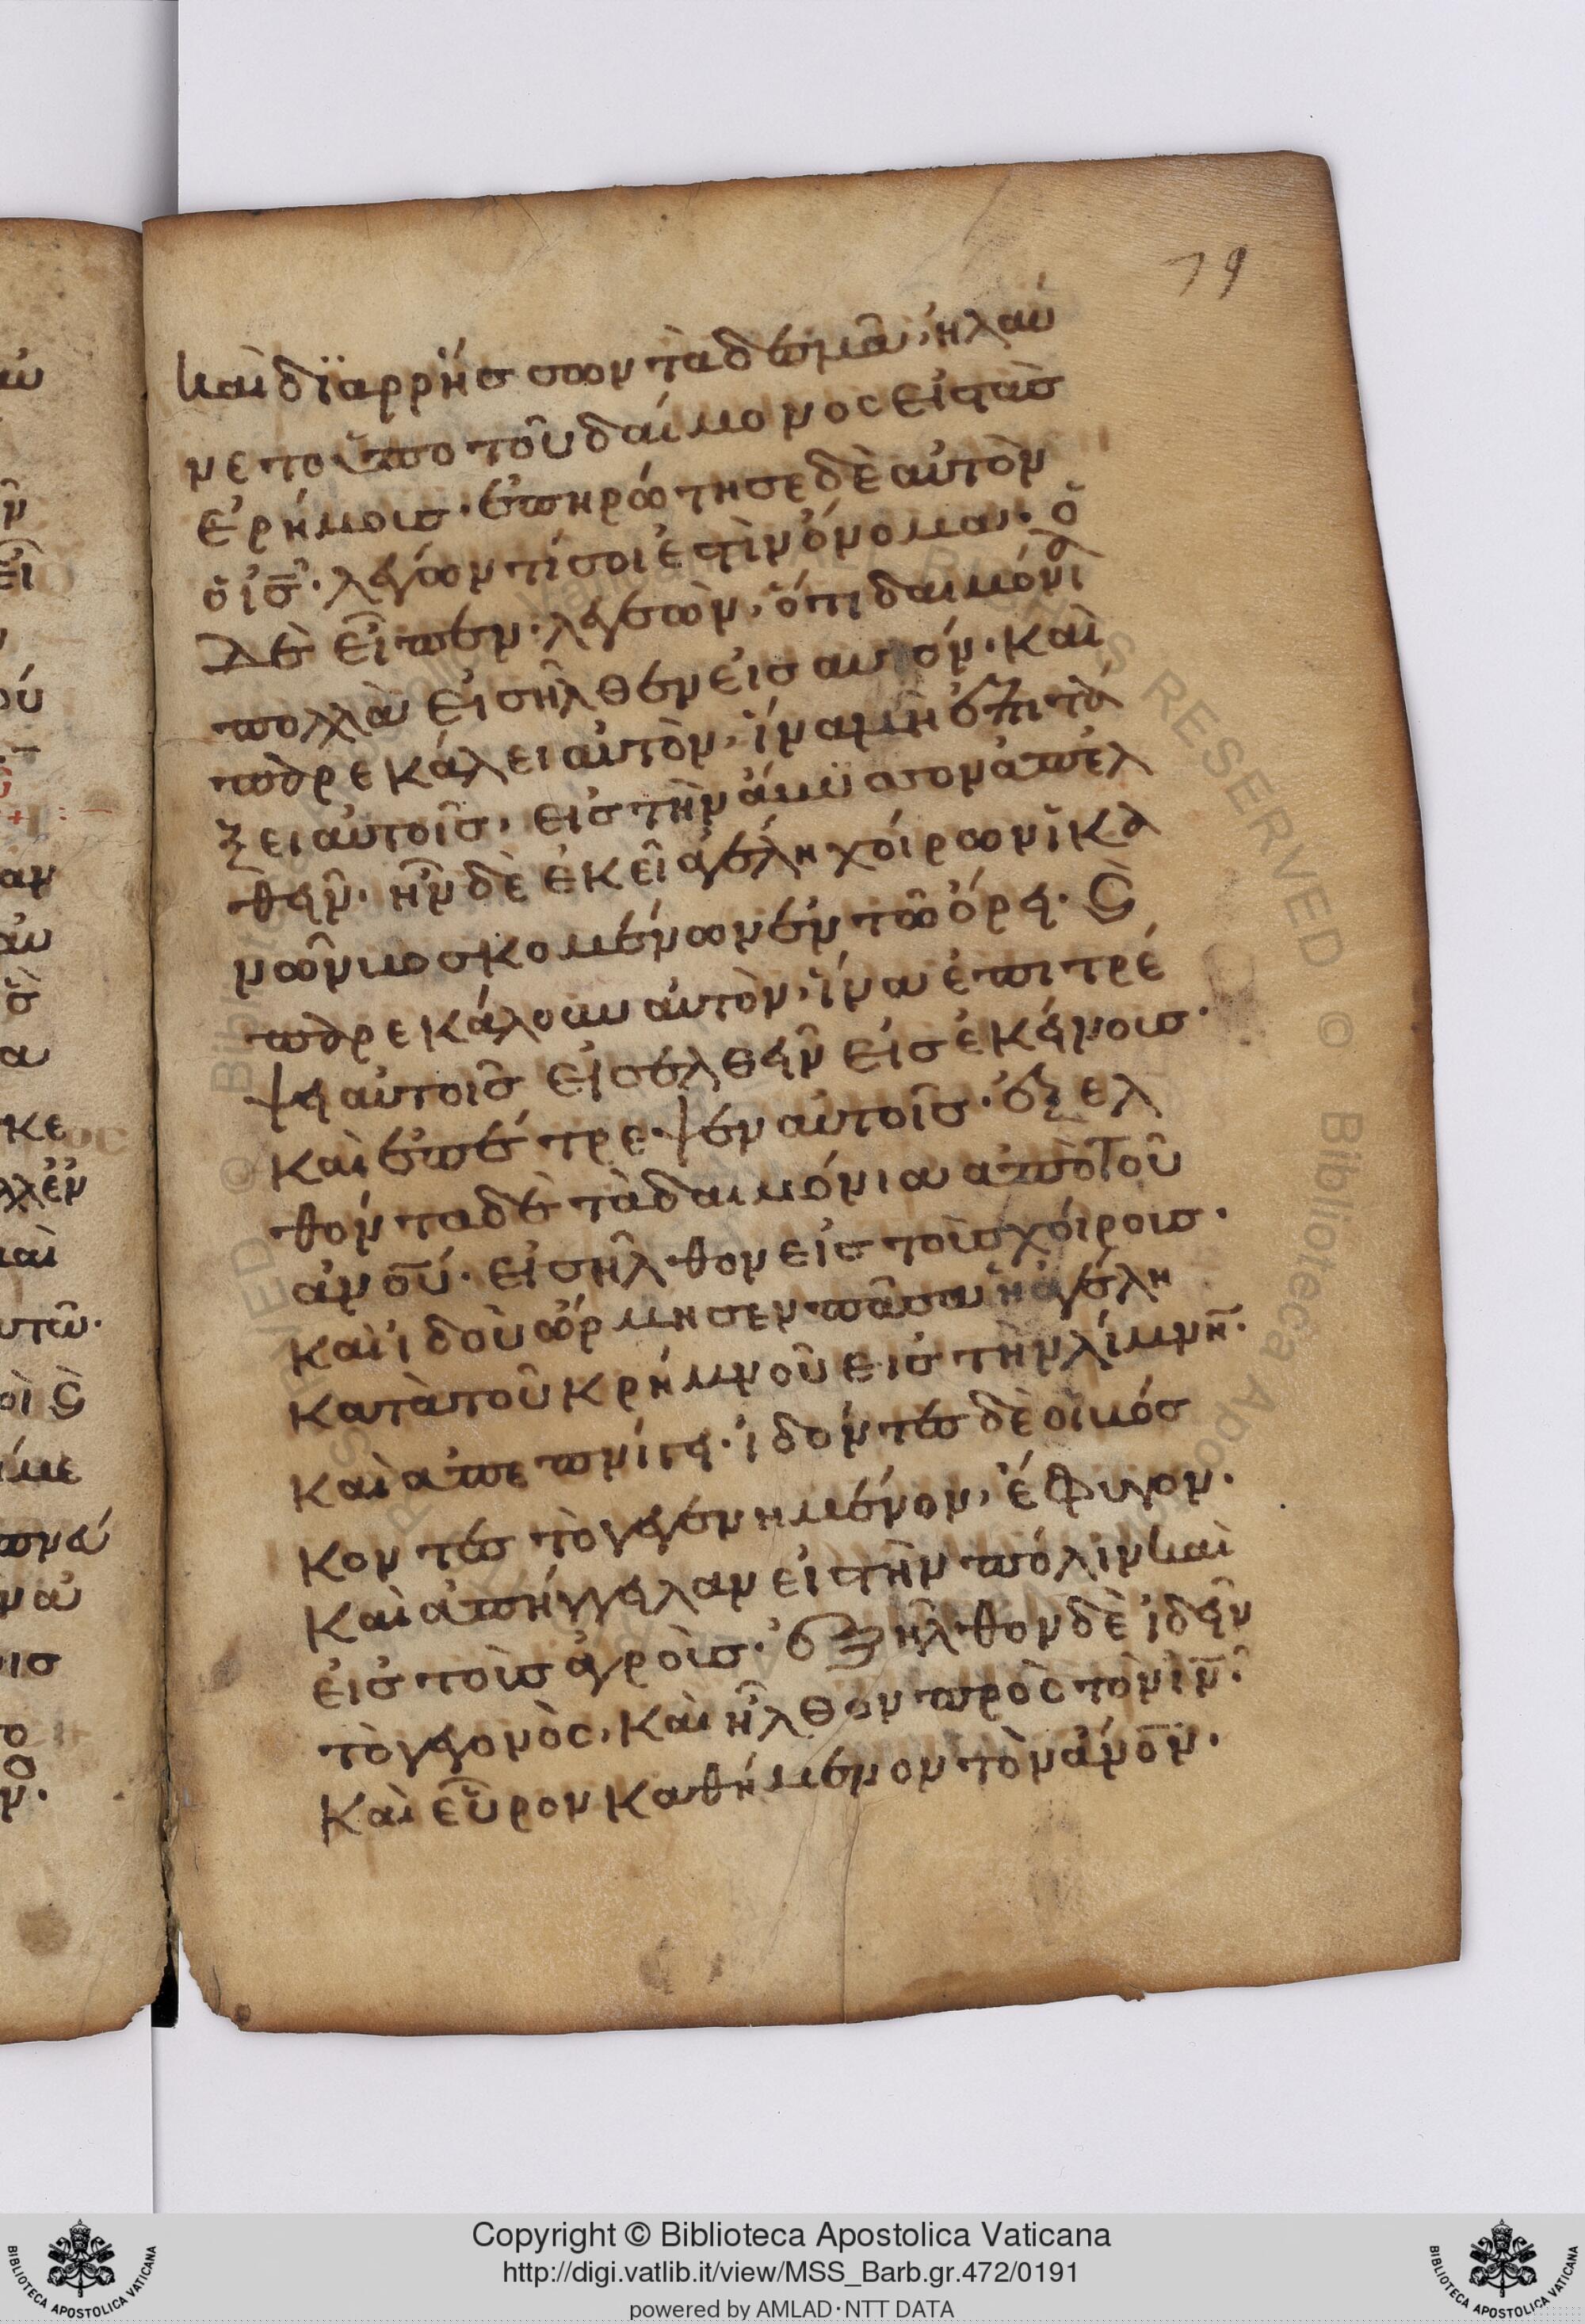 79
καὶ δϊαρρήσσων τὰ δεσμὰ, ἠλαύ
νετο ὑπο τοῦ δαίμονος εἰ τὰσ
ἐρήμοισ· ἐπηρώτησε δὲ αὐτὸν
ὁ ἰ̅σ̅· λέγων τί σοι ἐστὶν ὄνομα· ὁ
δὲ εἶπεν· λεγεὼν, ὅτι δαιμόνια
πολλὰ εἰσῆλθεν εἰσ αυτόν· καὶ
παρεκάλει αὐτὸν, ἵνα μὴ ἐπιτά
ξει αὐτοῖσ, εἰσ τὴν ἄμϋσσον ἀπελ
θεῖν· ἦν δὲ ἐκεῖ ἀγέλη χοίρων ἱκα
νῶν βοσκομένων ἐν τῶ ὄρει· Ϛ
παρεκάλουν αὐτὸν, ἵνα ἐπιτρέ
ψει αὐτοῖσ εἰσελθεῖν εἰσ ἐκείνοισ·
καὶ ἐπέτρεψεν αὐτοῖσ· ἐξελ
θόντα δὲ τὰ δαιμόνια απὸ τοῦ
ἀν̅ο̅ύ· εἰσῆλθον εἰσ τοὶσ χοίροισ·
καὶ ἰδοὺ ὥρμησεν πᾶσα ἡ ἀγέλη
κατὰ τοῦ κρήμνοῦ εισ τὴν λίμνη̅·
καὶ απεπνίγει· ἰδόντεσ δὲ οἱ βόσ
κοντεσ τὸ γεγενημένον, ἔφυγον·
καὶ ἀπήγγειλαν εἰ τὴν πόλιν καὶ
εἰσ τοὶσ ἀγροὶσ· ἐξῆλθον δὲ ἰδεῖν
τὸ γεγονὸς, καὶ ἦλθον πρὸς τὸν ἰ̅ν̅·
καὶ εὗρον καθήμενον τὸν ἄν̅ο̅ν·
Copyright © Biblioteca Apostolica Vaticana
http://digi.vatlib.it/view/MSS_Barb.gr.472/0191
powered by AMLAD·NTT DATA
BIBLIOTECA APOSTOLICA VATICANA
BIBLIOTECA APOSTOLICA VATICANA